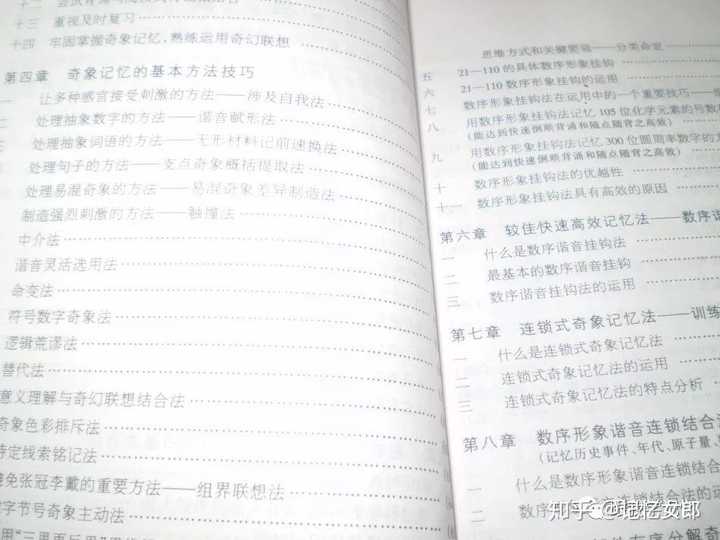 十三 重视及时复习
十四 牢固掌握奇象记忆，熟练运用奇幻联想
第四章 奇象记忆的基本方法技巧
一 让多种感官接受刺激的方法——涉及自我法
二 处理抽象数字的方法——谐音赋形法
三 处理抽象词语的方法——无形材料记前速换法
处理句子的方法——支点奇象概括提取法
处理易混奇象的方法——易混奇象差异制造法
制造强烈刺激的方法——触撞法
中介法
谐音灵活选用法
命变法
符号数字奇象法
逻辑荒谬法
替代法
意义理解与奇幻联想结合法
奇象色彩排斥法
特定线索铭记法
避免张冠李戴的重要方法——组界联想法
字节号奇象主动法
思维方式和关键要领——分类命定
五 21—110的具体数序形象挂钩
六 21—110数序形象挂钩的运用
七 数序形象挂钩法在运用中的一个重要技巧
八 用数序形象挂钩法记忆105位化学元素的号数
(能达到快速倒顺背诵和随点随背之高效)
九 用数序形象挂钩法记忆300位圆周率数字的方
(能达到快速倒顺背诵和随点随背之高效)
十 数序形象挂钩法的优越性
十一 数序形象挂钩法具有高效的原因
第六章 较佳快速高效记忆法——数序谐
一 什么是数序谐音挂钩法
二 最基本的数序谐音挂钩
三 数序谐音挂钩法的运用
第七章 连锁式奇象记忆法——训练
一 什么是连锁式奇象记忆法
二 连锁式奇象记忆法的运用
三 连锁式奇象记忆法的特点分析
第八章 数序形象谐音连锁结合法
(记忆历史事件、年代、原子量、
一 什么是数序形象谐音连锁
二 数序形象谐音连锁结合法的
知乎 @记忆女郎